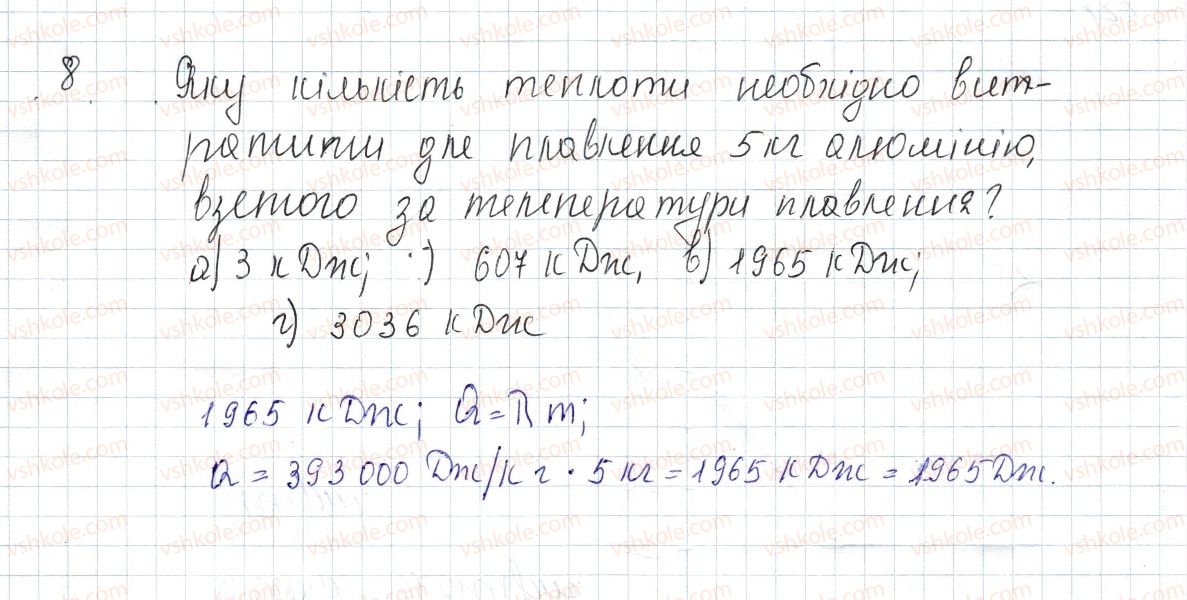 8. Яку кількість теплоти необхідно вит-
ратити для плавлення 5 кг алюмінію,
взятого за температури плавлення?
а) 3 кДж; ) 607 кДж, в) 1965 кДж;
г) 3036 кДж
1965 кДж; Q = λ m;
Q = 393 000 Дж/кг · 5 кг = 1965 кДж = 1965 Дж.